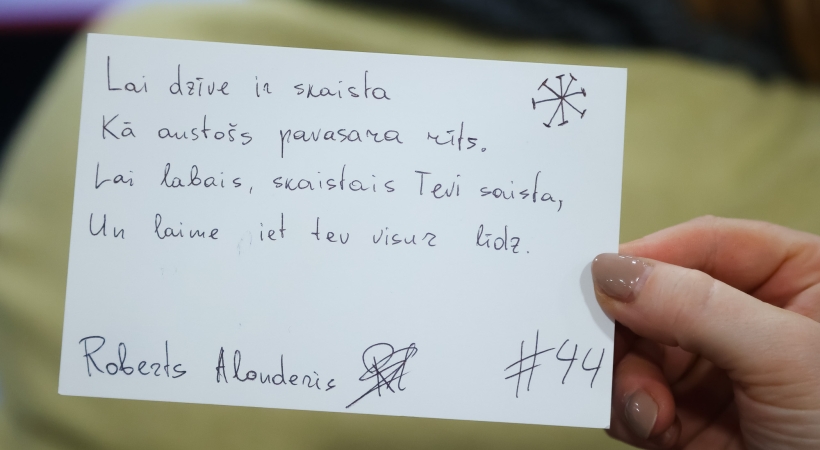 Lai dzīve ir skaista
Kā austošs pavasara rīts.
Lai labais, skaistais Tevi saista,
Un laime iet tev visur līdz.
Roberts Alonderis
#44